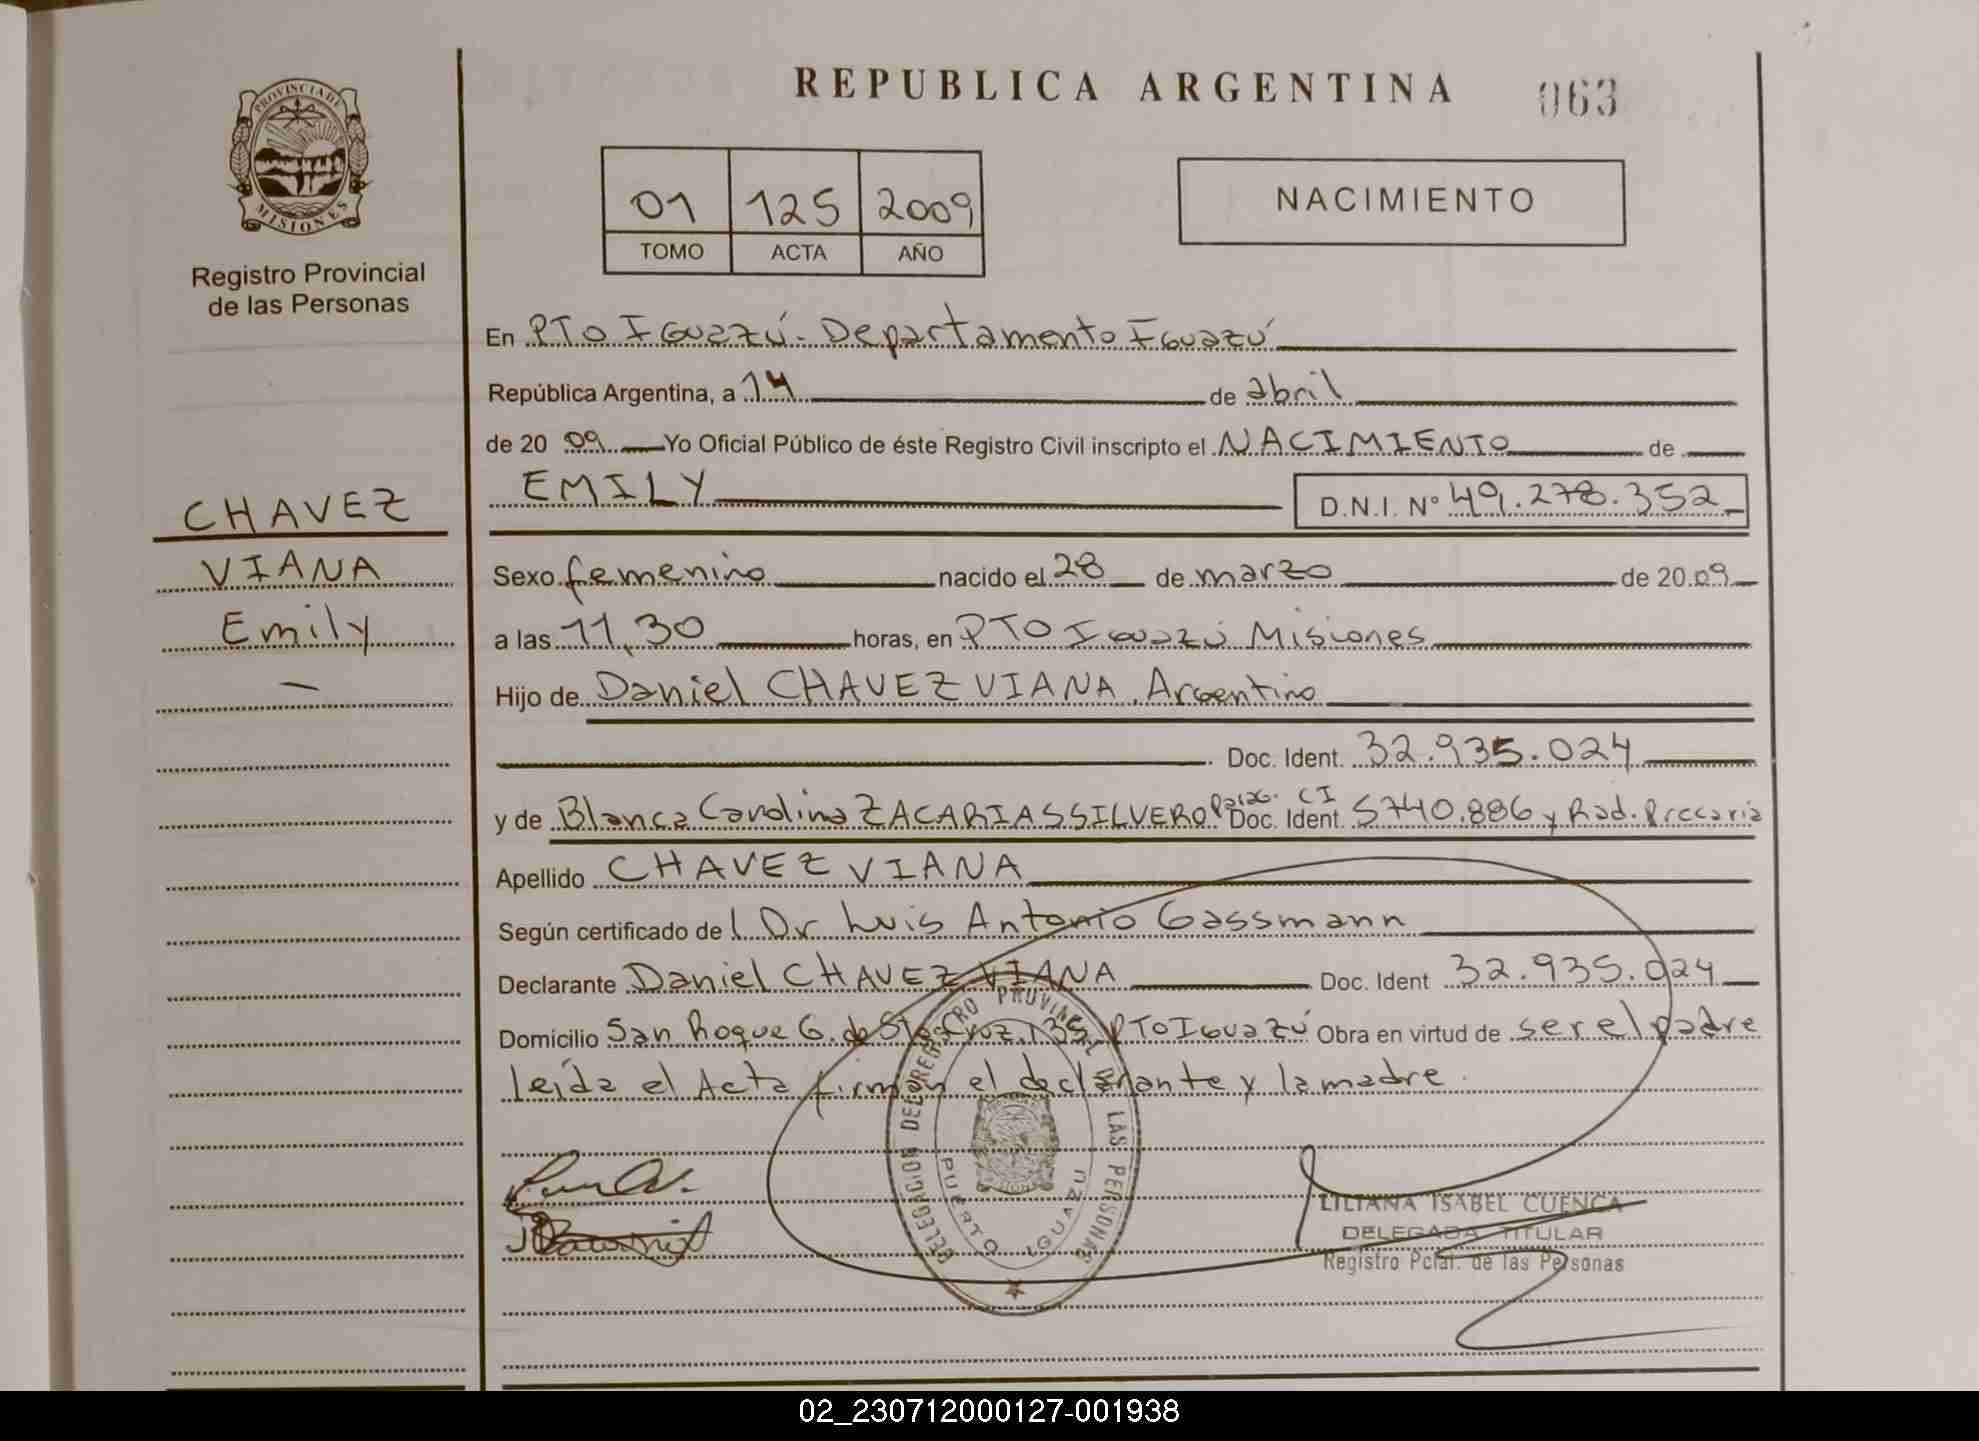 REPUBLICA ARGENTINA
063
PROVINCIA DE
MISIONES
Registro Provincial
de las Personas
01 125 2009
TOMO ACTA AÑO
NACIMIENTO
En PTO IGUAZÚ - Departamento IGUAZÚ
República Argentina, a 14 de abril
de 20 09 Yo Oficial Público de éste Registro Civil inscripto el NACIMIENTO de
EMILY D.N.I. N° 49.278.352
CHAVEZ
VIANA
Emily
Sexo femenino nacido el 28 de marzo de 20 09
a las 11,30 horas, en PTO IGUAZÚ Misiones
Hijo de Daniel CHAVEZ VIANA, Argentino
Doc. Ident. 32.935.024
y de Blanca Carolina ZACARIAS SILVERO Parag. CI Doc. Ident. 5740.886 y Rad. Precaria
Apellido CHAVEZ VIANA
Según certificado del Dr Luis Antonio Gassmann
Declarante Daniel CHAVEZ VIANA Doc. Ident 32.935.024
Domicilio San Roque G. de Sta Cruz 135 PTO IGUAZÚ Obra en virtud de ser el padre
leída el Acta firman el declarante y la madre.
DELEGACION DEL REGISTRO PROVINCIAL DE LAS PERSONAS
PUERTO IGUAZU
LILIANA ISABEL CUENCA
DELEGADA TITULAR
Registro Pcial. de las Personas
02_230712000127-001938